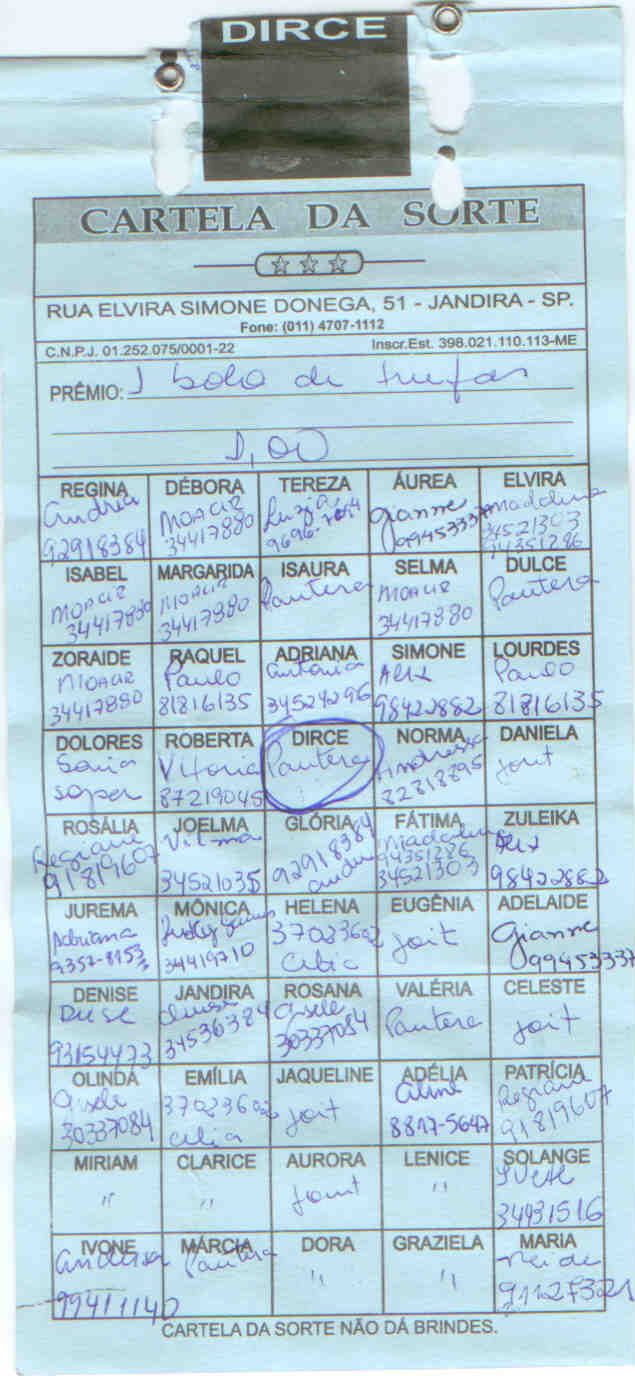 DIRCE
CARTELA DA SORTE
RUA ELVIRA SIMONE DONEGA, 51 - JANDIRA - SP.
Fone: (011) 4707-1112
C.N.P.J. 01.252.075/0001-22 Inscr.Est. 398.021.110.113-ME
PRÊMIO: 1 bolo de trufas
1,00
REGINA DÉBORA TEREZA ÁUREA ELVIRA
Andréa MOACIR Luzia Gianne Madalena
92918384 34417880 9696- 99453337 34521303
94351286
ISABEL MARGARIDA ISAURA SELMA DULCE
MOACIR MOACIR Pantera MOACIR Pantera
34417880 34417880 34417880
ZORAIDE RAQUEL ADRIANA SIMONE LOURDES
MOACIR Paulo Antonia Alex Paulo
34417880 81816135 34524296 98422882 81816135
DOLORES ROBERTA DIRCE NORMA DANIELA
Sonia Vitoria Pantera Andressa Joit
soper 87219045 82818895
ROSÁLIA JOELMA GLÓRIA FÁTIMA ZULEIKA
Regiane Vilma 92918384 Madalena Alex
91819607 34521035 Andréa 94351286 98422882
34521303
JUREMA MÔNICA HELENA EUGÊNIA ADELAIDE
Adriana 37023602 Joit Gianne
9352-8153 34419710 Celia 99453337
DENISE JANDIRA ROSANA VALÉRIA CELESTE
Deise Gisele Pantera Joit
93154473 34536384 30337084
OLINDA EMÍLIA JAQUELINE ADÉLIA PATRÍCIA
Gisele 37023602 Joit Aline Regiane
30337084 Celia 8817-5647 91819607
MIRIAM CLARICE AURORA LENICE SOLANGE
" " Joint " Ivete
34931516
IVONE MÁRCIA DORA GRAZIELA MARIA
Anderson Pantera " " Neide
99411140 91127321
CARTELA DA SORTE NÃO DÁ BRINDES.